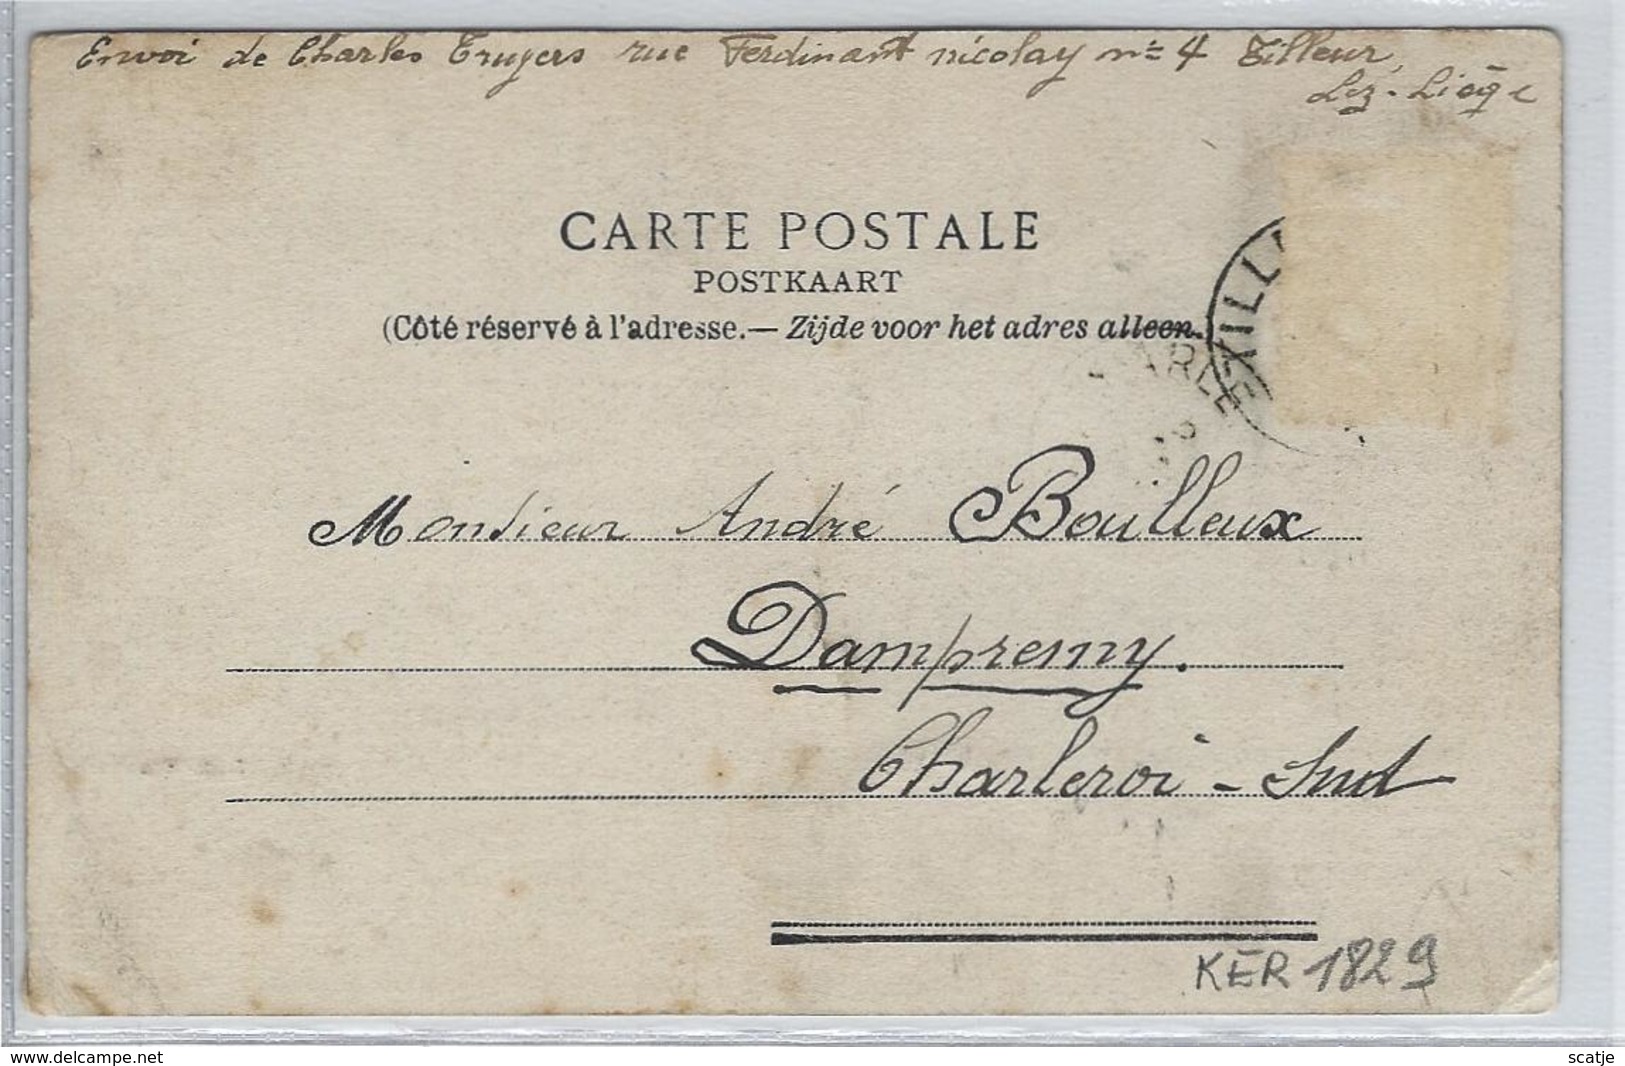 Envoi de Charles Truyers rue Ferdinant nicolay n° 4 Tilleur,
Lez-Liège
CARTE POSTALE
POSTKAART
(Côté réservé à l'adresse.— Zijde voor het adres alleen.)
TILL
ARLE
Monsieur André Boulleux
Dampremy.
Charleroi - Sud
KER 1829
www.delcampe.net
scatje